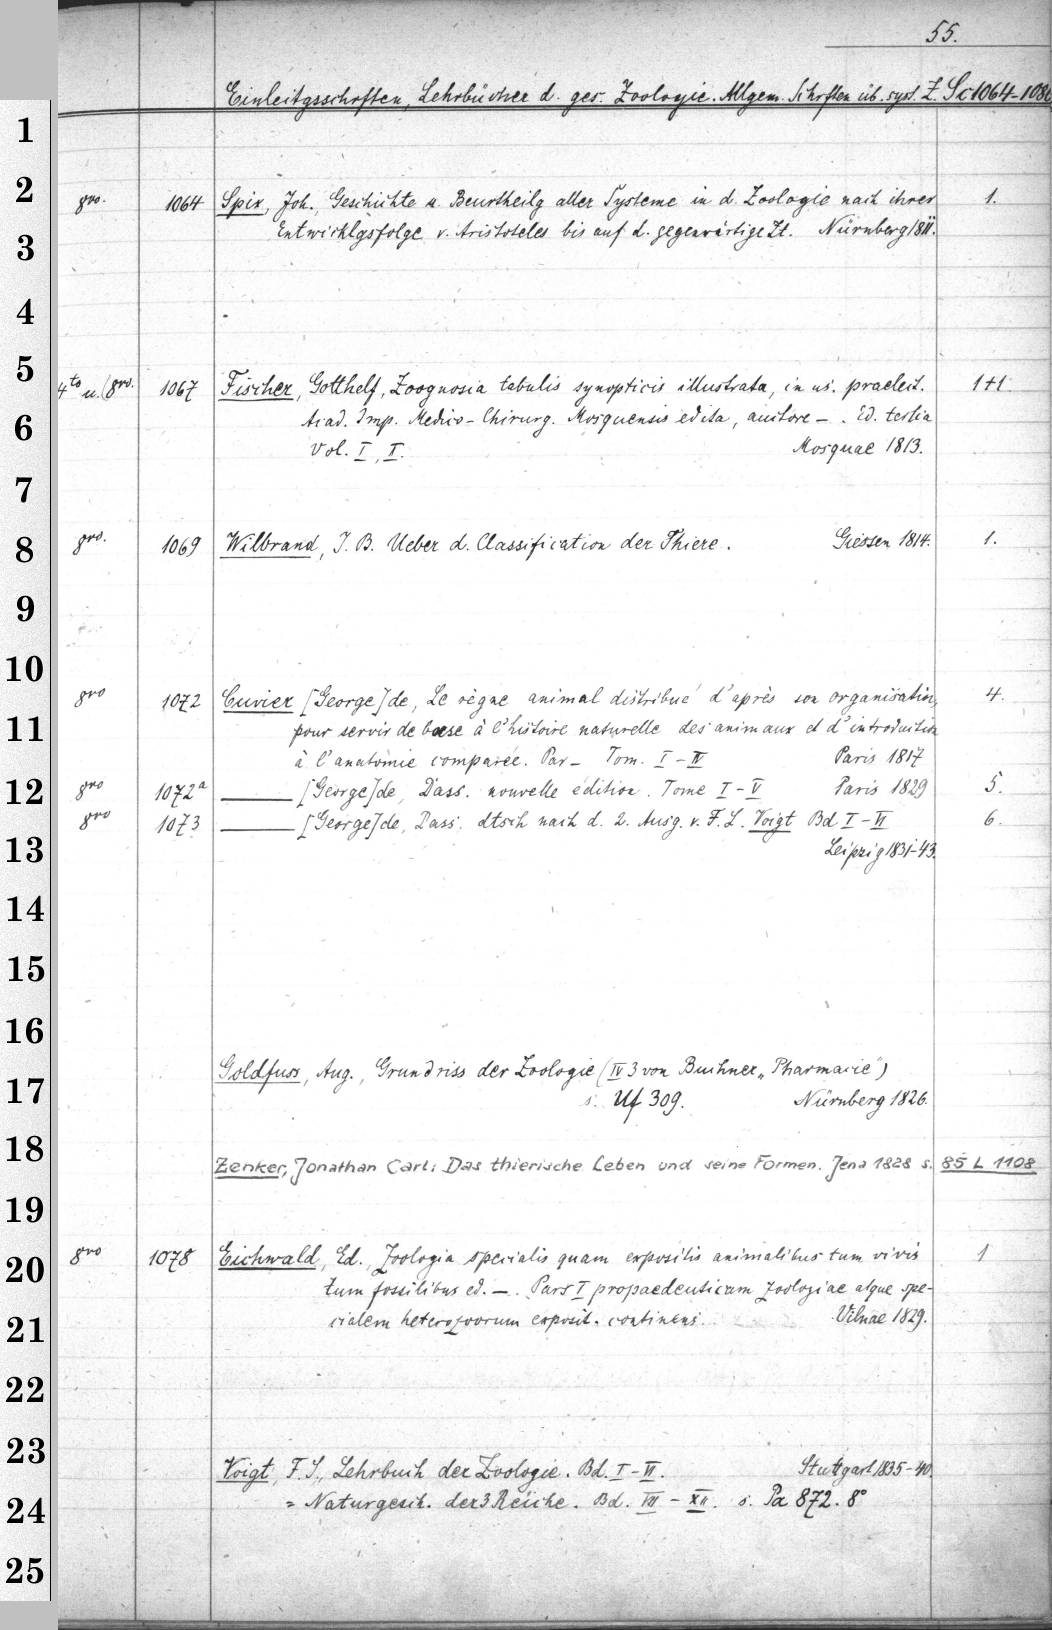 55.
Einleitgsschriften, Lehrbücher d. ges. Zoologie. Allgem. Schriften üb. syst. Z. Sc 1064-108
1
2
8vo. 1064 Spix, Joh., Geschichte u. Beurtheilg aller Systeme in d. Zoologie nach ihrer 1.
3
Entwicklgsfolge v. Aristoteles bis auf d. gegenwärtige Zt. Nürnberg 1811.
4
5
4to u. (8vo. 1067 Fischer, Gotthelf, Zoognosia tabulis synopticis illustrata, in us. praelect. 1+1
6
Acad. Imp. Medico-Chirurg. Mosquensis edita, auctore – . Ed. tertia
Vol. I, II. Mosquae 1813.
7
8
8vo. 1069 Wilbrand, J. B. Ueber d. Classification der Thiere. Giessen 1814. 1.
9
10
8vo 1072 Cuvier [George] de, Le règne animal distribué d'après son organisation, 4.
11
pour servir de base à l'histoire naturelle des animaux et d'introduction
à l'anatomie comparée. Par – Tom. I – IV Paris 1817
12
8vo 1072a ——— [George] de, Dass. nouvelle édition. Tome I – V Paris 1829 5.
8vo 1073 ——— [George] de, Dass. dtsch nach d. 2. Ausg. v. F. S. Voigt Bd I – VI 6.
13
Leipzig 1831-43.
14
15
16
17
Goldfuss, Aug., Grundriss der Zoologie (IV 3 von Buchner „Pharmacie“)
s. Uf 309. Nürnberg 1826.
18
Zenker, Jonathan Carl: Das thierische Leben und seine Formen. Jena 1828 s. 85 L 1108
19
20
8vo 1078 Eichwald, Ed., Zoologia specialis quam expositis animalibus tum vivis 1
tum fossilibus ed. – . Pars I propaedeuticam zoologiae atque spe-
21
cialem heterozoorum exposit. continens. Vilnae 1829.
22
23
Voigt, F. S., Lehrbuch der Zoologie. Bd. I – VI. Stuttgart 1835-40.
24
= Naturgesch. der 3 Reiche. Bd. VII – XII. s. Pa 872. 8°
25